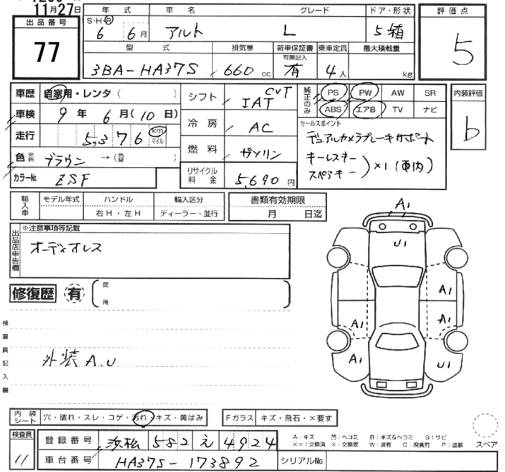 11月27日
出品番号
77
年式 車名 グレード ドア・形状 評価点
S・H・R
6年 6月 アルト L 5 箱
5
型式 排気量 新車保証書 乗車定員 最大積載量
有無記入
3BA-HA37S 660cc 有 4人 kg
車歴 自家用・レンタ( )
シフト CVT IAT
純正のみ
PS PW AW SR
ABS エアB TV ナビ
内装評価
b
車検 9年 6月(10日)
冷房 AC
セールスポイント
デュアルカメラブレーキサポート
キーレスキー
スペアキー
×1(車内)
走行 5,376 km マイル
燃料 ガソリン
色 系名 ブラウン →( 色)
カラーNo. ZSF
リサイクル料金 5,690円
輸入車 モデル年式 ハンドル 輸入区分 書類有効期限
右H・左H ディーラー・並行 月 日迄
出品店申告欄
※注意事項等記載
オーディオレス
修復歴 有
箇所
検査員記入欄
外装A.U
A1
U1
A1
A1 A1
U1
内装シート 穴・破れ・スレ・コゲ・汚れ・キズ・黄ばみ
Fガラス キズ・飛石・×要す
スペア
検査員
11
登録番号 浜松 582 え 4924
車台番号 HA37S-173892 シリアルNo.